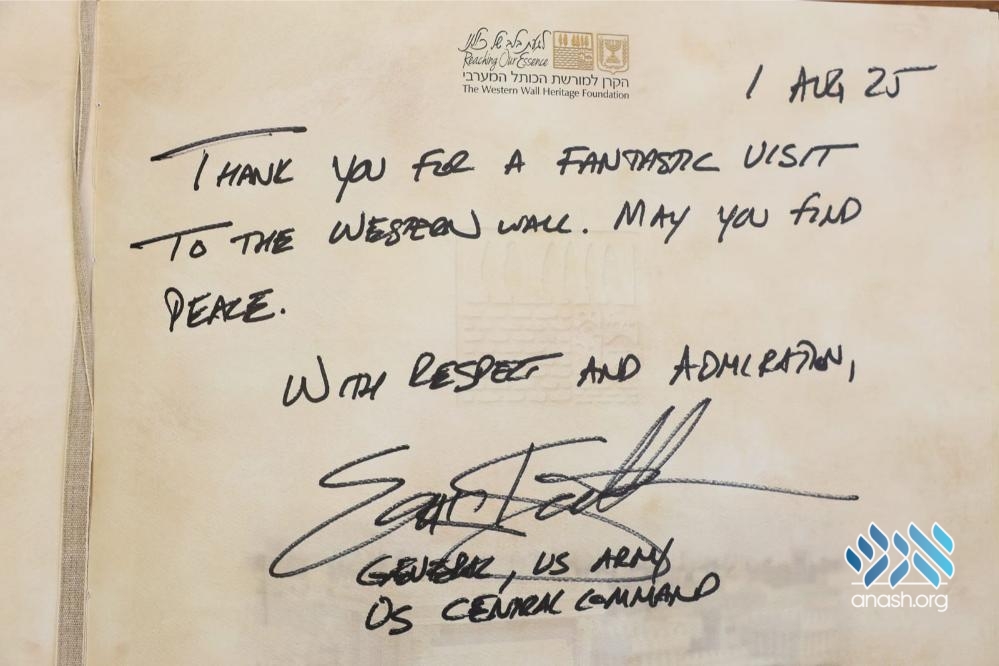 לגעת בלב של כולנו
Reaching Our Essence
הקרן למורשת הכותל המערבי
The Western Wall Heritage Foundation
1 AUG 25
THANK YOU FOR A FANTASTIC VISIT
TO THE WESTERN WALL. MAY YOU FIND
PEACE.
WITH RESPECT AND ADMIRATION,
GENERAL, US ARMY
US CENTRAL COMMAND
אנש
anash.org